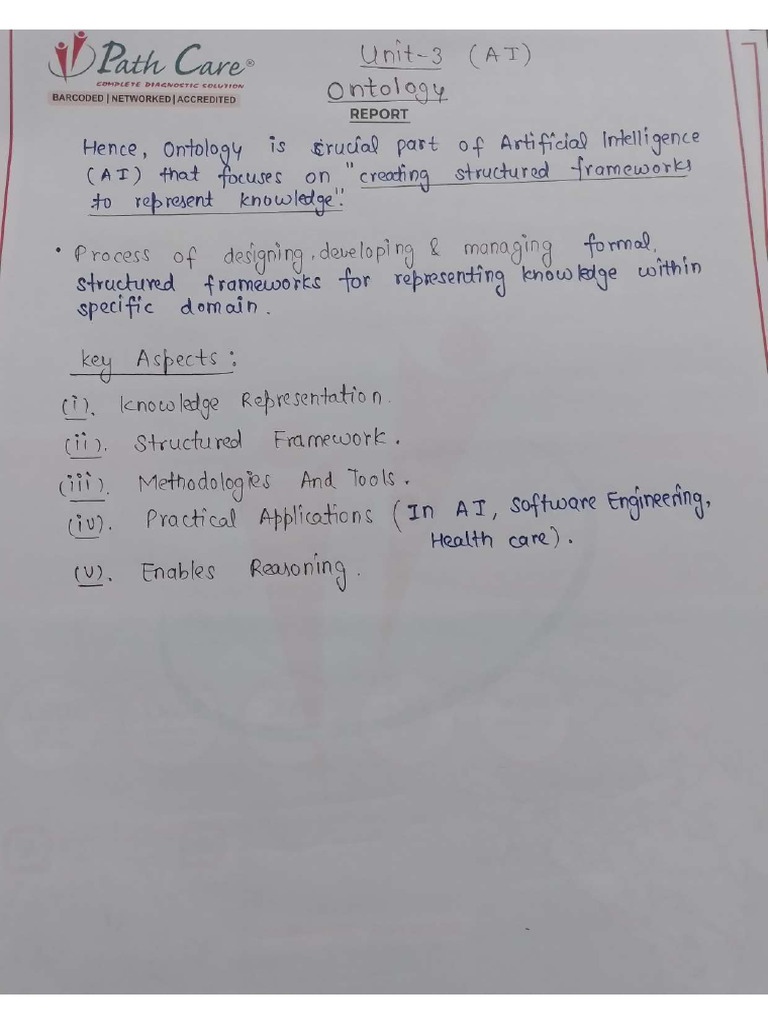 Path Care®
COMPLETE DIAGNOSTIC SOLUTION
BARCODED | NETWORKED | ACCREDITED
Unit-3 (AI)
Ontology
REPORT
Hence, Ontology is crucial part of Artificial Intelligence
(AI) that focuses on "creating structured frameworks
to represent knowledge".
• Process of designing, developing & managing formal,
structured frameworks for representing knowledge within
specific domain.
Key Aspects:
(i). Knowledge Representation.
(ii). Structured Framework.
(iii). Methodologies And Tools.
(iv). Practical Applications (In AI, Software Engineering,
Health care).
(v). Enables Reasoning.